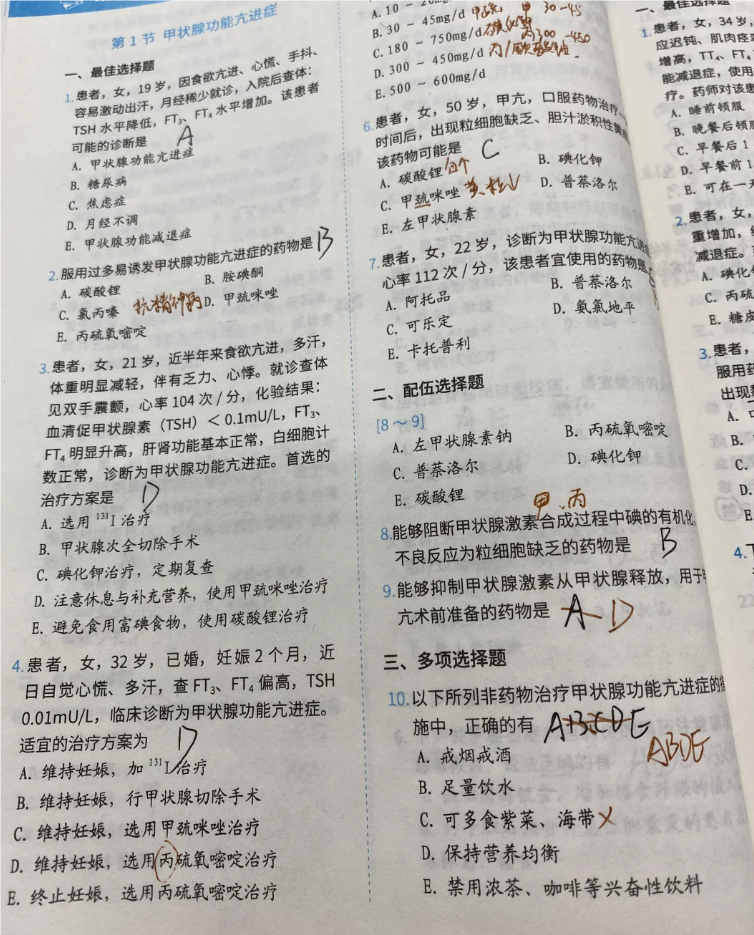 第1节 甲状腺功能亢进症
一、最佳选择题
1.患者，女，19岁，因食欲亢进、心慌、手抖、
容易激动出汗，月经稀少就诊，入院后查体：
TSH水平降低，FT₃、FT₄水平增加。该患者
可能的诊断是 A
A. 甲状腺功能亢进症
B. 糖尿病
C. 焦虑症
D. 月经不调
E. 甲状腺功能减退症
2.服用过多易诱发甲状腺功能亢进症的药物是 B
A. 碳酸锂 B. 胺碘酮
C. 氯丙嗪 抗精神病 D. 甲巯咪唑
E. 丙硫氧嘧啶
3.患者，女，21岁，近半年来食欲亢进，多汗，
体重明显减轻，伴有乏力、心悸。就诊查体
见双手震颤，心率104次/分，化验结果：
血清促甲状腺素（TSH）＜0.1mU/L，FT₃、
FT₄明显升高，肝肾功能基本正常，白细胞计
数正常，诊断为甲状腺功能亢进症。首选的
治疗方案是 D
A. 选用 ¹³¹I 治疗
B. 甲状腺次全切除手术
C. 碘化钾治疗，定期复查
D. 注意休息与补充营养，使用甲巯咪唑治疗
E. 避免食用富碘食物，使用碳酸锂治疗
4.患者，女，32岁，已婚，妊娠2个月，近
日自觉心慌、多汗，查FT₃、FT₄偏高，TSH
0.01mU/L，临床诊断为甲状腺功能亢进症。
适宜的治疗方案为 D
A. 维持妊娠，加 ¹³¹I 治疗
B. 维持妊娠，行甲状腺切除手术
C. 维持妊娠，选用甲巯咪唑治疗
D. 维持妊娠，选用丙硫氧嘧啶治疗
E. 终止妊娠，选用丙硫氧嘧啶治疗
A. 10 ~
B. 30 ~ 45mg/d 甲 30-45
C. 180 ~ 750mg/d 碳
D. 300 ~ 450mg/d 丙 300-450
E. 500 ~ 600mg/d
6.患者，女，50岁，甲亢，口服药物治疗一
时间后，出现粒细胞缺乏、胆汁淤积性黄
该药物可能是 C
A. 碳酸锂 B. 碘化钾
C. 甲巯咪唑 D. 普萘洛尔
E. 左甲状腺素
7.患者，女，22岁，诊断为甲状腺功能亢进
心率112次/分，该患者宜使用的药物是
A. 阿托品 B. 普萘洛尔
C. 可乐定 D. 氨氯地平
E. 卡托普利
二、配伍选择题
[8～9]
A. 左甲状腺素钠 B. 丙硫氧嘧啶
C. 普萘洛尔 D. 碘化钾
E. 碳酸锂
甲、丙
8.能够阻断甲状腺激素合成过程中碘的有机化
不良反应为粒细胞缺乏的药物是 B
9.能够抑制甲状腺激素从甲状腺释放，用于
亢术前准备的药物是 A D
三、多项选择题
10.以下所列非药物治疗甲状腺功能亢进症的
施中，正确的有 ABCDE
ABDE
A. 戒烟戒酒
B. 足量饮水
C. 可多食紫菜、海带 X
D. 保持营养均衡
E. 禁用浓茶、咖啡等兴奋性饮料
一、最佳选择题
1.患者，女，34岁，
应迟钝、肌肉痉
增高，TT₄、FT₄
能减退症，使用
疗。药师对该患
A. 睡前顿服
B. 晚餐后顿服
C. 早餐后1
D. 早餐前1
E. 可在一天
2.患者，女，
重增加，
减退症。
A. 碘化
C. 丙硫
E. 糖皮
3.患者，
服用药
出现
A.
B.
C.
D.
E
4.